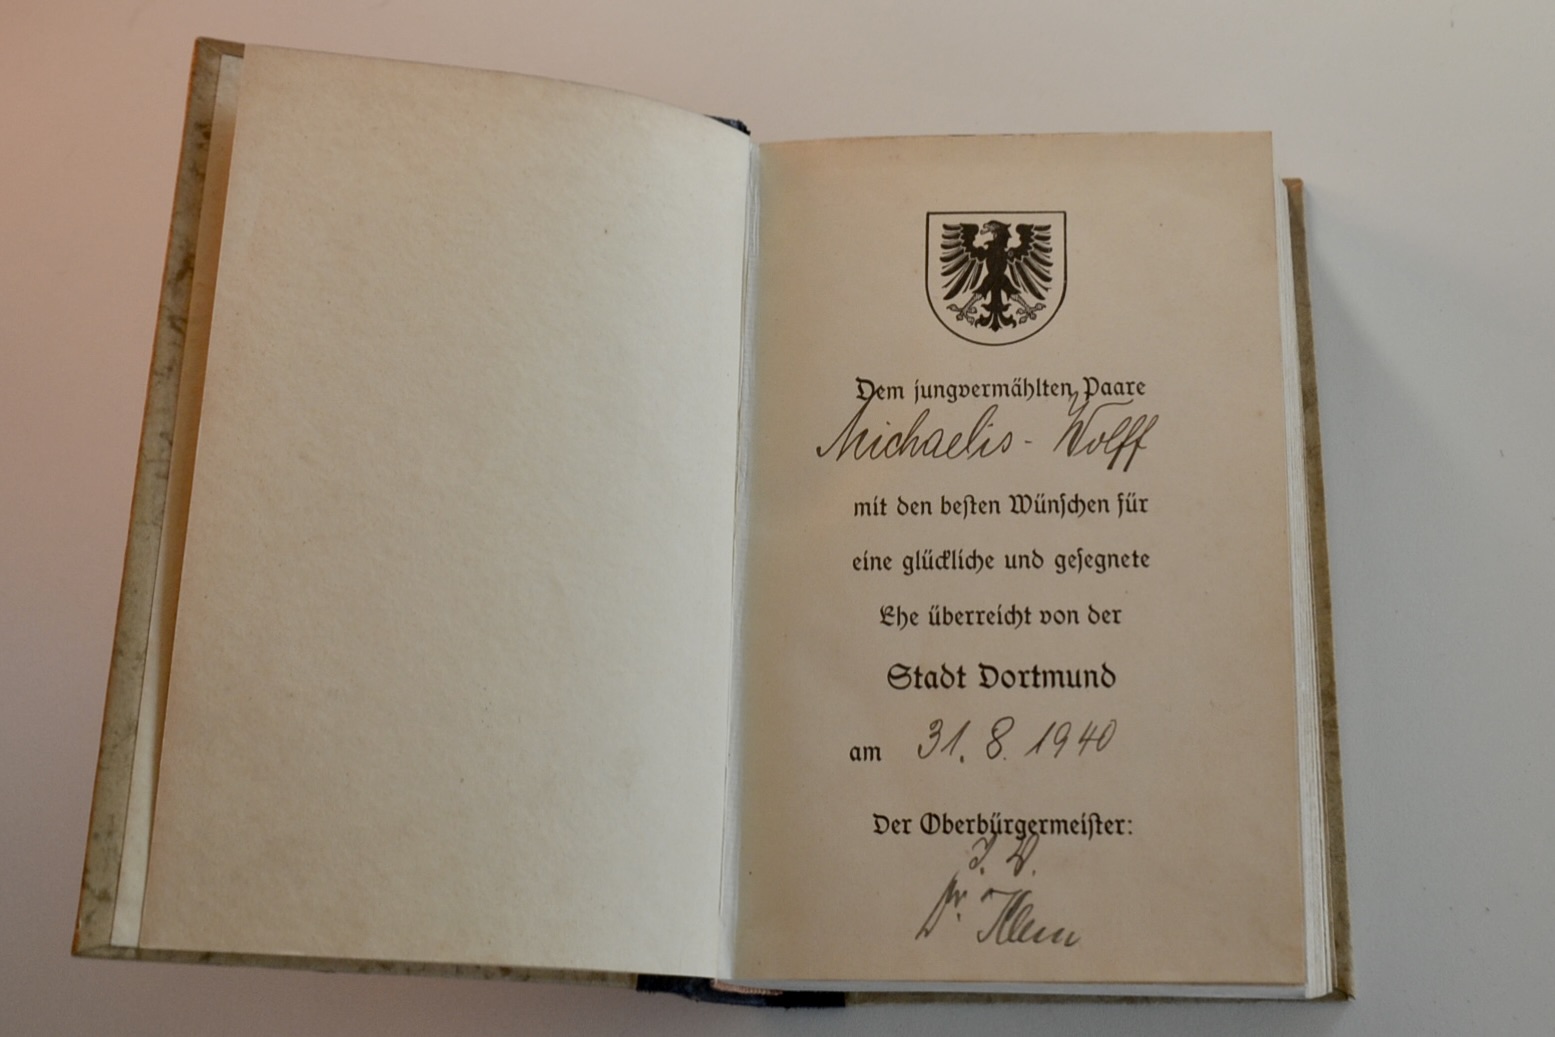 Dem jungvermählten Paare
Michaelis - Wolff
mit den besten Wünschen für
eine glückliche und gesegnete
Ehe überreicht von der
Stadt Dortmund
am 31. 8. 1940
Der Oberbürgermeister:
J. V.
Dr. Klein